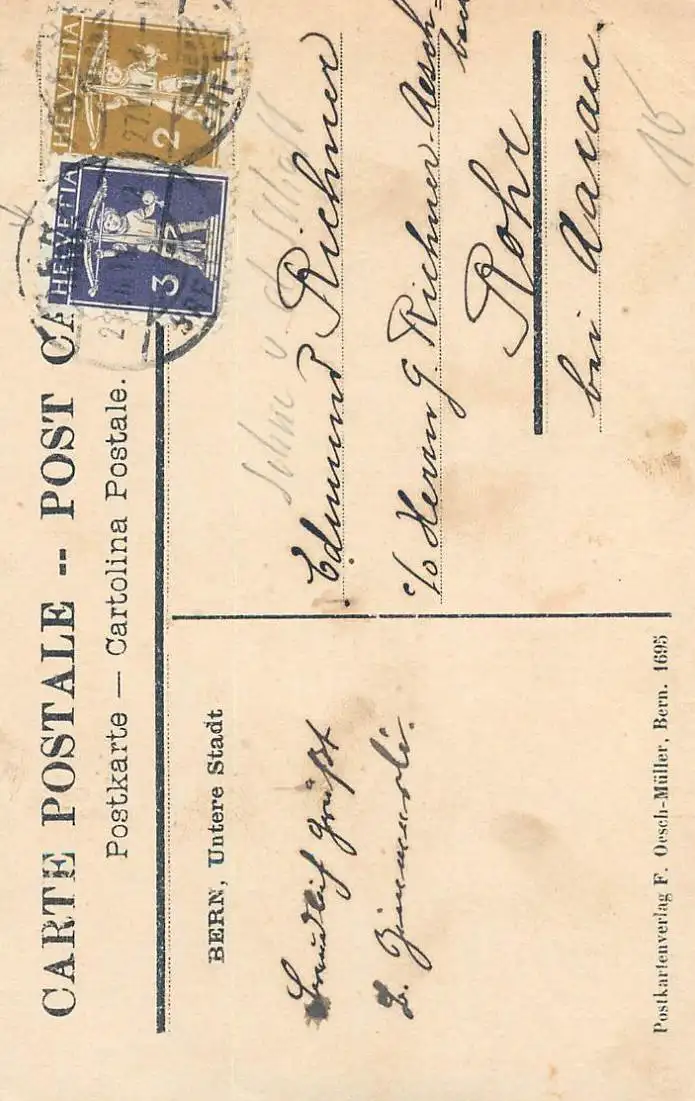 CARTE POSTALE -- POST CA
Postkarte — Cartolina Postale.
HELVETIA
2
HELVETIA
3
BERN, Untere Stadt
Freundlich grüßt
Zimmerli.
Edmund Richner
c/o Herrn G. Richner-Aesch=
bach
Rohr
bei Aarau.
15
Postkartenverlag F. Oesch-Müller, Bern. 1695